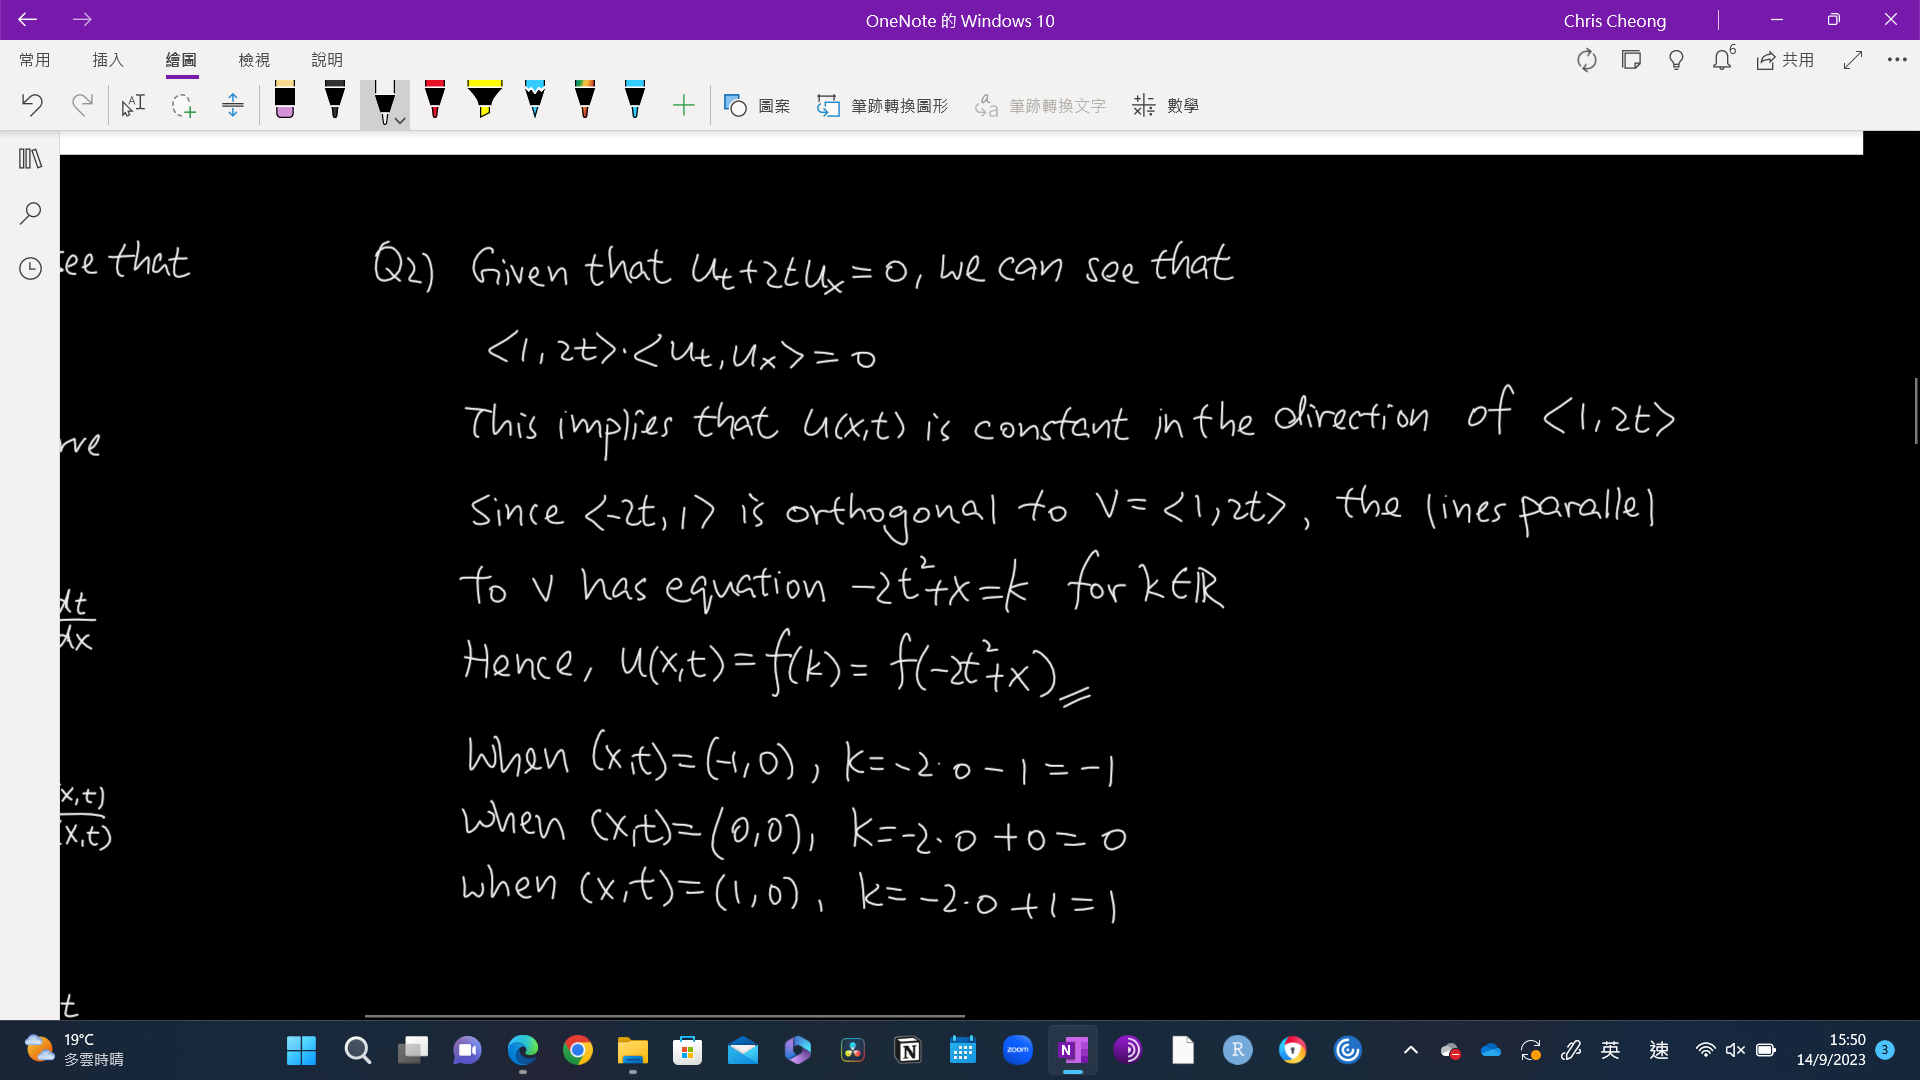 OneNote 的 Windows 10
Chris Cheong
常用 插入 繪圖 檢視 說明
6
共用
圖案 筆跡轉換圖形 筆跡轉換文字 數學
see that
Q2) Given that u_t+2tu_x=0, we can see that
<1, 2t>·<u_t, u_x>=0
This implies that u(x,t) is constant in the direction of <1, 2t>
rve
Since <-2t, 1> is orthogonal to v=<1, 2t>, the lines parallel
to v has equation -2t²+x=k for k∈ℝ
dt
dx
Hence, u(x,t)=f(k)=f(-2t²+x)
When (x,t)=(-1,0), k=-2·0-1=-1
x,t)
(x,t)
when (x,t)=(0,0), k=-2·0+0=0
when (x,t)=(1,0), k=-2·0+1=1
t
19°C
多雲時晴
zoom
N
N
R
英
速
15:50
14/9/2023
3